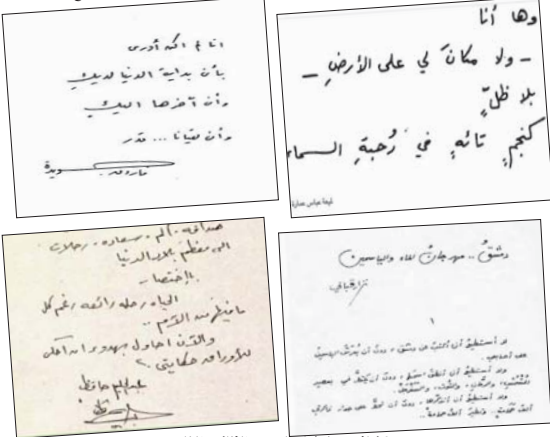 انا لم اكن أدرى
بأن بداية الدنيا لديكِ
وأن آخرها اليكِ
وأن لقيانا ... قدر
فاروق جويدة
وها أنا
- ولا مكانَ لي على الأرضِ -
بلا ظلٍّ
كنجمٍ تائهٍ في رُحبةِ السماء
لميعة عباس عمارة
صداقه . ألم . سعاده . رحلات
الى معظم بلاد الدنيا
بالإختصار
الحياه رحله رائعه رغم كل
ما فيها من آلام ..
والآن احاول بهدوء ان احكى
للأوراق حكايتى ..
عبدالحليم حافظ
دمشقُ .. مهرجانُ الماء والياسمين
نزار قباني
١
لا أستطيعُ أن أكتبَ عن دمشق ، دونَ أن يُعرّشَ الياسمينُ
على أصابعي .
ولا أستطيعُ أن أنطقَ اسمَها ، دونَ أن يكتظَّ فمي بعصير
المشمشِ ، والرمّانِ ، والتوتِ ، والسفرجلْ .
ولا أستطيعُ أن أتذكّرَها ، دونَ أن تحطَّ على جدار ذاكرتي
ألفُ حمامةٍ .. وتطيرَ ألفُ حمامةْ ..